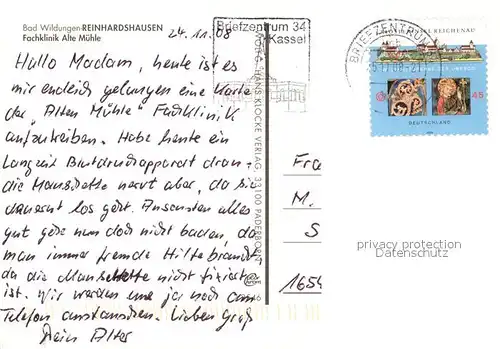 Bad Wildungen-REINHARDSHAUSEN
Fachklinik Alte Mühle
24.11.08
Hallo Madam, heute ist es
mir endlich gelungen eine Karte
der "Alten Mühle" Fachklinik
aufzutreiben. Habe heute ein
Langzeit Blutdruckapparat dran.
die Manschette nervt aber, da sie
dauernd los geht. Ansonsten alles
gut gehe nun doch nicht baden, da
man immer fremde Hilfe braucht
da die Manschette nicht fixiert
ist. Wir werden uns ja noch am
Telefon austauschen. Lieben Gruß
Dein Alter
Briefzentrum 34
Kassel
HANS KLOCKE VERLAG, 33100 PADERBORN
BRIEFZENTRUM
REICHENAU
45
DEUTSCHLAND
Fra
M.
S
1654
privacy protection
Datenschutz